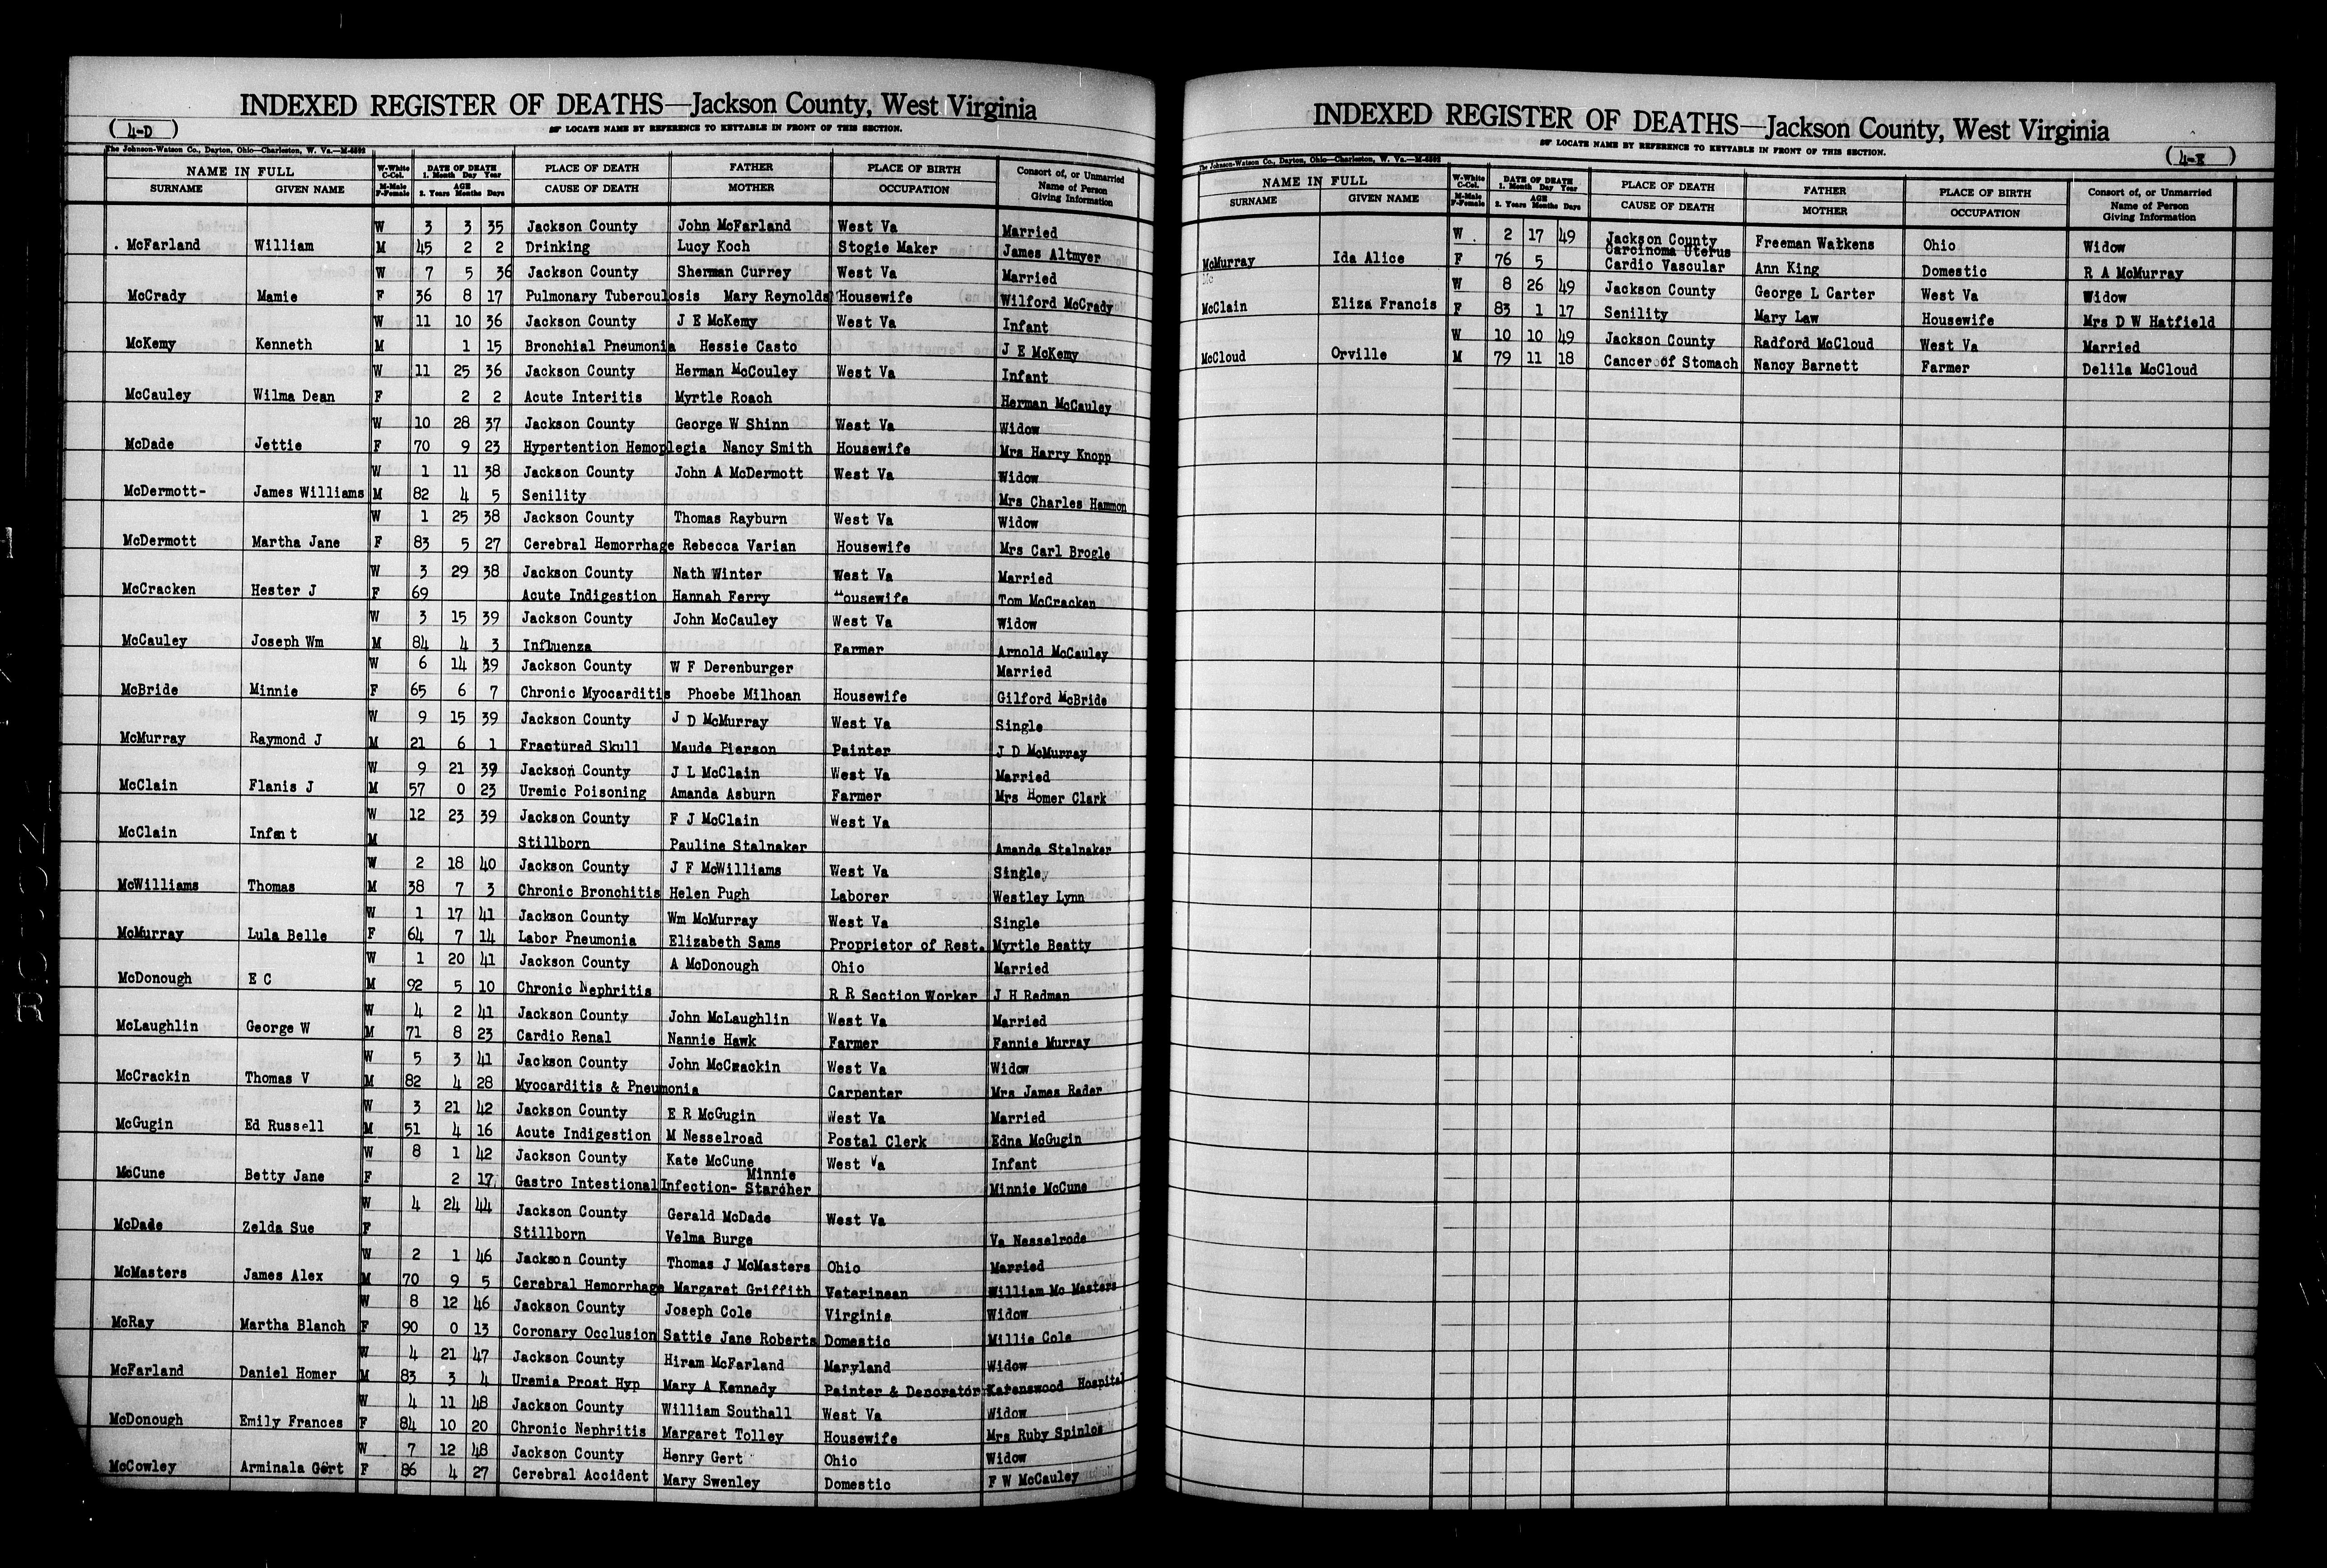 INDEXED REGISTER OF DEATHS—Jackson County, West Virginia
( 4-D )
☞ LOCATE NAME BY REFERENCE TO KEYTABLE IN FRONT OF THIS SECTION.
The Johnson-Watson Co., Dayton, Ohio—Charleston, W. Va.—M-6592
NAME IN FULL W-White C-Col. DATE OF DEATH 1. Month Day Year PLACE OF DEATH FATHER PLACE OF BIRTH Consort of, or Unmarried
SURNAME GIVEN NAME M-Male F-Female AGE 2. Years Months Days CAUSE OF DEATH MOTHER OCCUPATION Name of Person Giving Information
W 3 3 35 Jackson County John McFarland West Va Married
. McFarland William M 45 2 2 Drinking Lucy Koch Stogie Maker James Altmyer
W 7 5 36 Jackson County Sherman Currey West Va Married
McCrady Mamie F 36 8 17 Pulmonary Tuberculosis Mary Reynolds Housewife Wilford McCrady
W 11 10 36 Jackson County J E McKemy West Va Infant
McKemy Kenneth M 1 15 Bronchial Pneumonia Hessie Casto J E McKemy
W 11 25 36 Jackson County Herman McCouley West Va Infant
McCauley Wilma Dean F 2 2 Acute Interitis Myrtle Roach Herman McCauley
W 10 28 37 Jackson County George W Shinn West Va Widow
McDade Jettie F 70 9 23 Hypertention Hemoplegia Nancy Smith Housewife Mrs Harry Knopp
W 1 11 38 Jackson County John A McDermott West Va Widow
McDermott- James Williams M 82 4 5 Senility Mrs Charles Hammon
W 1 25 38 Jackson County Thomas Rayburn West Va Widow
McDermott Martha Jane F 83 5 27 Cerebral Hemorrhage Rebecca Varian Housewife Mrs Carl Brogle
W 3 29 38 Jackson County Nath Winter West Va Married
McCracken Hester J F 69 Acute Indigestion Hannah Ferry Housewife Tom McCracken
W 3 15 39 Jackson County John McCauley West Va Widow
McCauley Joseph Wm M 84 4 3 Influenza Farmer Arnold McCauley
W 6 14 39 Jackson County W F Derenburger Married
McBride Minnie F 65 6 7 Chronic Myocarditis Phoebe Milhoan Housewife Gilford McBride
W 9 15 39 Jackson County J D McMurray West Va Single
McMurray Raymond J M 21 6 1 Fractured Skull Maude Pierson Painter J D McMurray
W 9 21 39 Jackson County J L McClain West Va Married
McClain Flanis J M 57 0 23 Uremic Poisoning Amanda Asburn Farmer Mrs Homer Clark
W 12 23 39 Jackson County F J McClain West Va
McClain Infant M Stillborn Pauline Stalnaker Amanda Stalnaker
W 2 18 40 Jackson County J F McWilliams West Va Single
McWilliams Thomas M 38 7 3 Chronic Bronchitis Helen Pugh Laborer Westley Lynn
W 1 17 41 Jackson County Wm McMurray West Va Single
McMurray Lula Belle F 64 7 14 Labor Pneumonia Elizabeth Sams Proprietor of Rest. Myrtle Beatty
W 1 20 41 Jackson County A McDonough Ohio Married
McDonough E C M 92 5 10 Chronic Nephritis R R Section Worker J H Redman
W 4 2 41 Jackson County John McLaughlin West Va Married
McLaughlin George W M 71 8 23 Cardio Renal Nannie Hawk Farmer Fannie Murray
W 5 3 41 Jackson County John McCrackin West Va Widow
McCrackin Thomas V M 82 4 28 Myocarditis & Pneumonia Carpenter Mrs James Rader
W 3 21 42 Jackson County E R McGugin West Va Married
McGugin Ed Russell M 51 4 16 Acute Indigestion M Nesselroad Postal Clerk Edna McGugin
W 8 1 42 Jackson County Kate McCune West Va Infant
McCune Betty Jane F 2 17 Gastro Intestional Infection- Minnie Starcher Minnie McCune
W 4 24 44 Jackson County Gerald McDade West Va
McDade Zelda Sue F Stillborn Velma Burge Va Nesselrode
W 2 1 46 Jackson County Thomas J McMasters Ohio Married
McMasters James Alex M 70 9 5 Cerebral Hemorrhage Margaret Griffith Veterinean William Mc Masters
W 8 12 46 Jackson County Joseph Cole Virginia Widow
McRay Martha Blanch F 90 0 13 Coronary Occlusion Sattie Jane Roberts Domestic Millie Cole
W 4 21 47 Jackson County Hiram McFarland Maryland Widow
McFarland Daniel Homer M 83 3 4 Uremia Prost Hyp Mary A Kennedy Painter & Decorator Karenswood Hospital
W 4 11 48 Jackson County William Southall West Va Widow
McDonough Emily Frances F 84 10 20 Chronic Nephritis Margaret Tolley Housewife Mrs Ruby Spinlos
W 7 12 48 Jackson County Henry Gert Ohio Widow
McCowley Arminala Gert F 86 4 27 Cerebral Accident Mary Swenley Domestic F W McCauley
INDEXED REGISTER OF DEATHS—Jackson County, West Virginia
☞ LOCATE NAME BY REFERENCE TO KEYTABLE IN FRONT OF THIS SECTION.
( 4-E )
The Johnson-Watson Co., Dayton, Ohio—Charleston, W. Va.—M-6592
NAME IN FULL W-White C-Col. DATE OF DEATH 1. Month Day Year PLACE OF DEATH FATHER PLACE OF BIRTH Consort of, or Unmarried
SURNAME GIVEN NAME M-Male F-Female AGE 2. Years Months Days CAUSE OF DEATH MOTHER OCCUPATION Name of Person Giving Information
W 2 17 49 Jackson County Freeman Watkens Ohio Widow
McMurray Ida Alice F 76 5 Carcinoma Uterus Cardio Vascular Ann King Domestic R A McMurray
W 8 26 49 Jackson County George L Carter West Va Widow
McClain Eliza Francis F 83 1 17 Senility Mary Law Housewife Mrs D W Hatfield
W 10 10 49 Jackson County Radford McCloud West Va Married
McCloud Orville M 79 11 18 Cancer of Stomach Nancy Barnett Farmer Delila McCloud